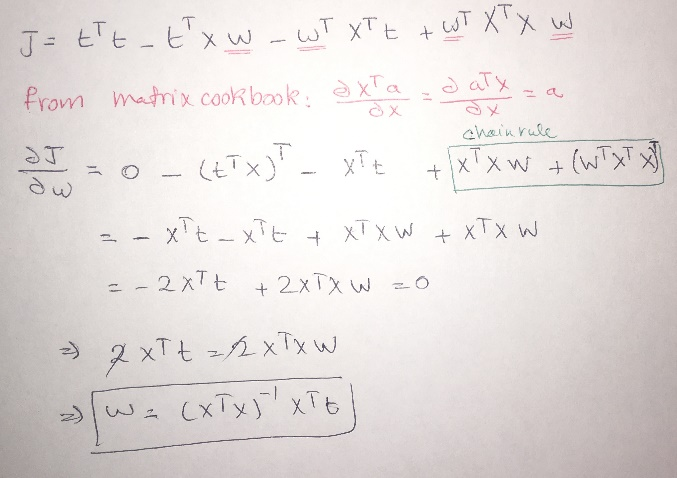 J = tᵀt - tᵀxw - wᵀxᵀt + wᵀxᵀxw
from matrix cookbook: ∂xᵀa/∂x = ∂aᵀx/∂x = a
chain rule
∂J/∂w = 0 - (tᵀx)ᵀ - xᵀt + xᵀxw + (wᵀxᵀx)ᵀ
= - xᵀt - xᵀt + xᵀxw + xᵀxw
= -2xᵀt + 2xᵀxw = 0
⇒ 2xᵀt = 2xᵀxw
⇒ w = (xᵀx)⁻¹xᵀt